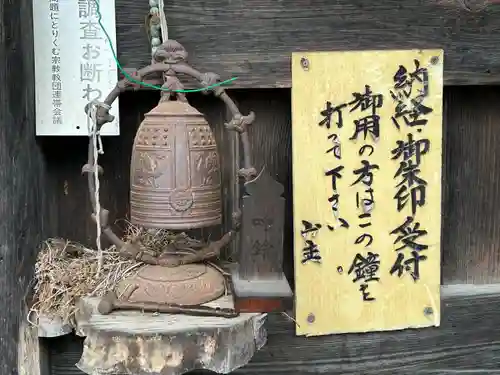 納経・御朱印受付
御用の方はこの鐘を
打って下さい
山主
調査お断わ
題にとりくむ宗教教団連帯会議